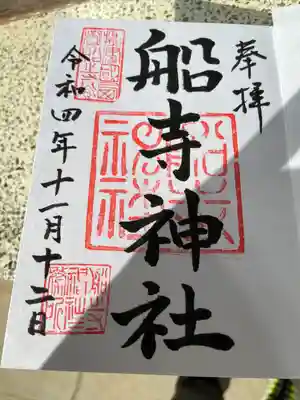 奉拝
船寺神社
令和四年十一月十二日
船寺神社